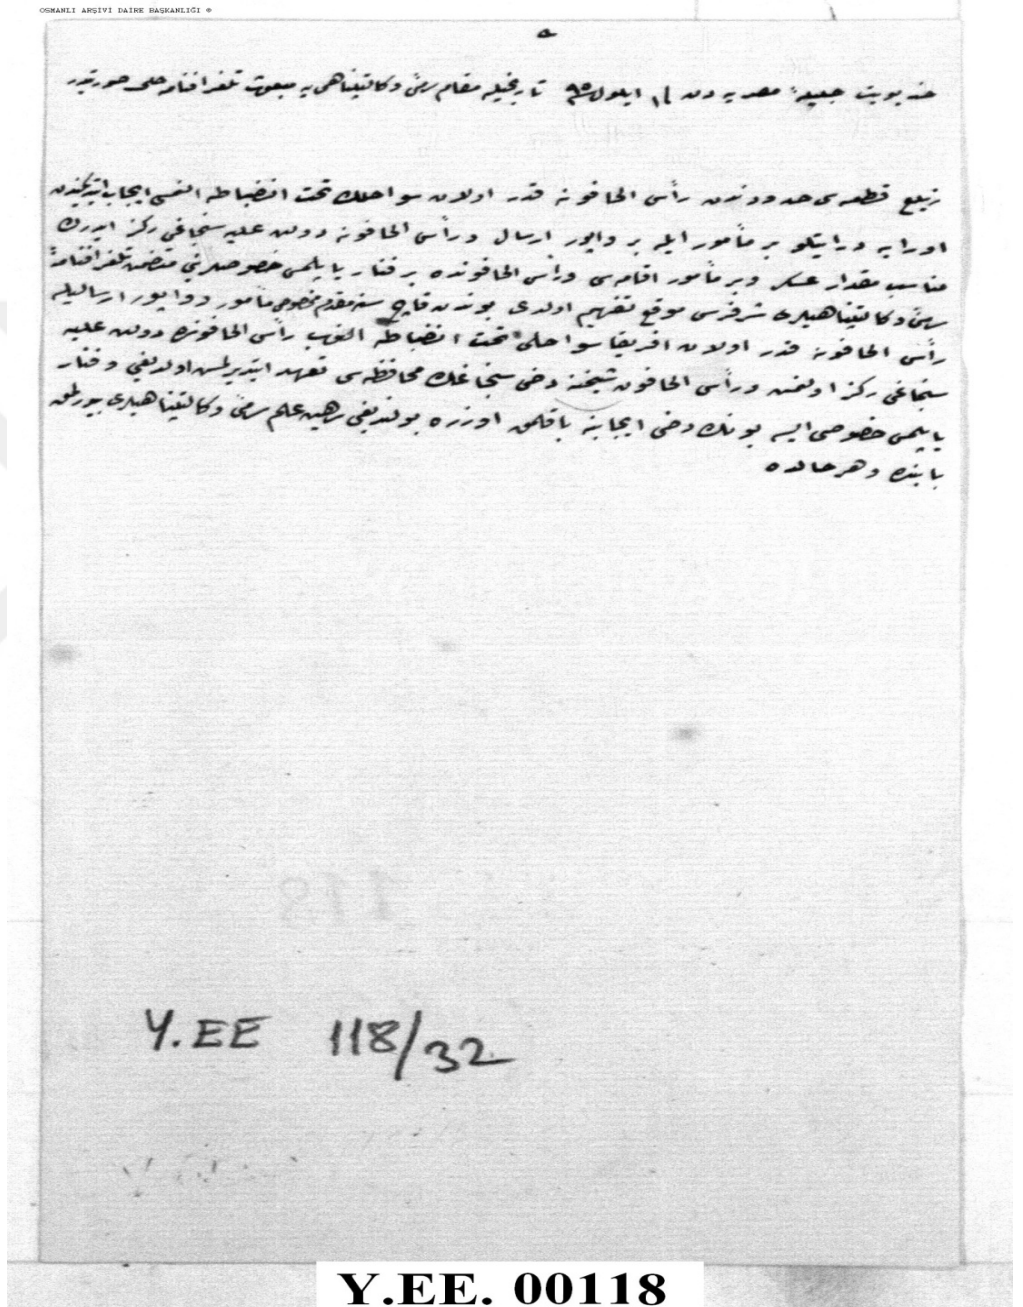 OSMANLI ARŞİVİ DAİRE BAŞKANLIĞI
٥
خديويت جليلهٔ مصريه دن ١٤ ايلول ٩٥ تاريخيله مقام سامئ وكالتپناهى يه مبعوث تلغرافنامه حلى صورتيدر
زيلع قطعه سى حدودندن رأس الحافونه قدر اولان سواحلك تحت انضباطه النمسى ايجاب ايتديكندن
اورايه درايتلو بر مأمور ايله بر واپور ارسال ورأس الحافونه دولت عليه سنجاغى ركز ايدرك
مناسب مقدار عسكر وبر مأمور اقامه سى ورأس الحافونده بر فنار ياپلمسى خصوصلرينى متضمن تلغرافنامهٔ
سامئ وكالتپناهيلرى شرفرس موقع تفهيم اولدى بوندن قاچ سنه مقدم مخصوص مأمور وواپور ارساليله
رأس الحافونه قدر اولان افريقا سواحلى تحت انضباطه النوب رأس الحافونه دولت عليه
سنجاغى ركز اولنمش ورأس الحافون شيخنه دخى سنجاغك محافظه سى تعهد ايتديرلمش اولديغى وفنار
ياپلمسى خصوصى ايسه بونك دخى ايجابنه باقلمق اوزره بولنديغى رهين علم سامئ وكالتپناهيلرى بيورلمق
بابنده وهرحالده
118
Y.EE 118/32
Y.EE. 00118